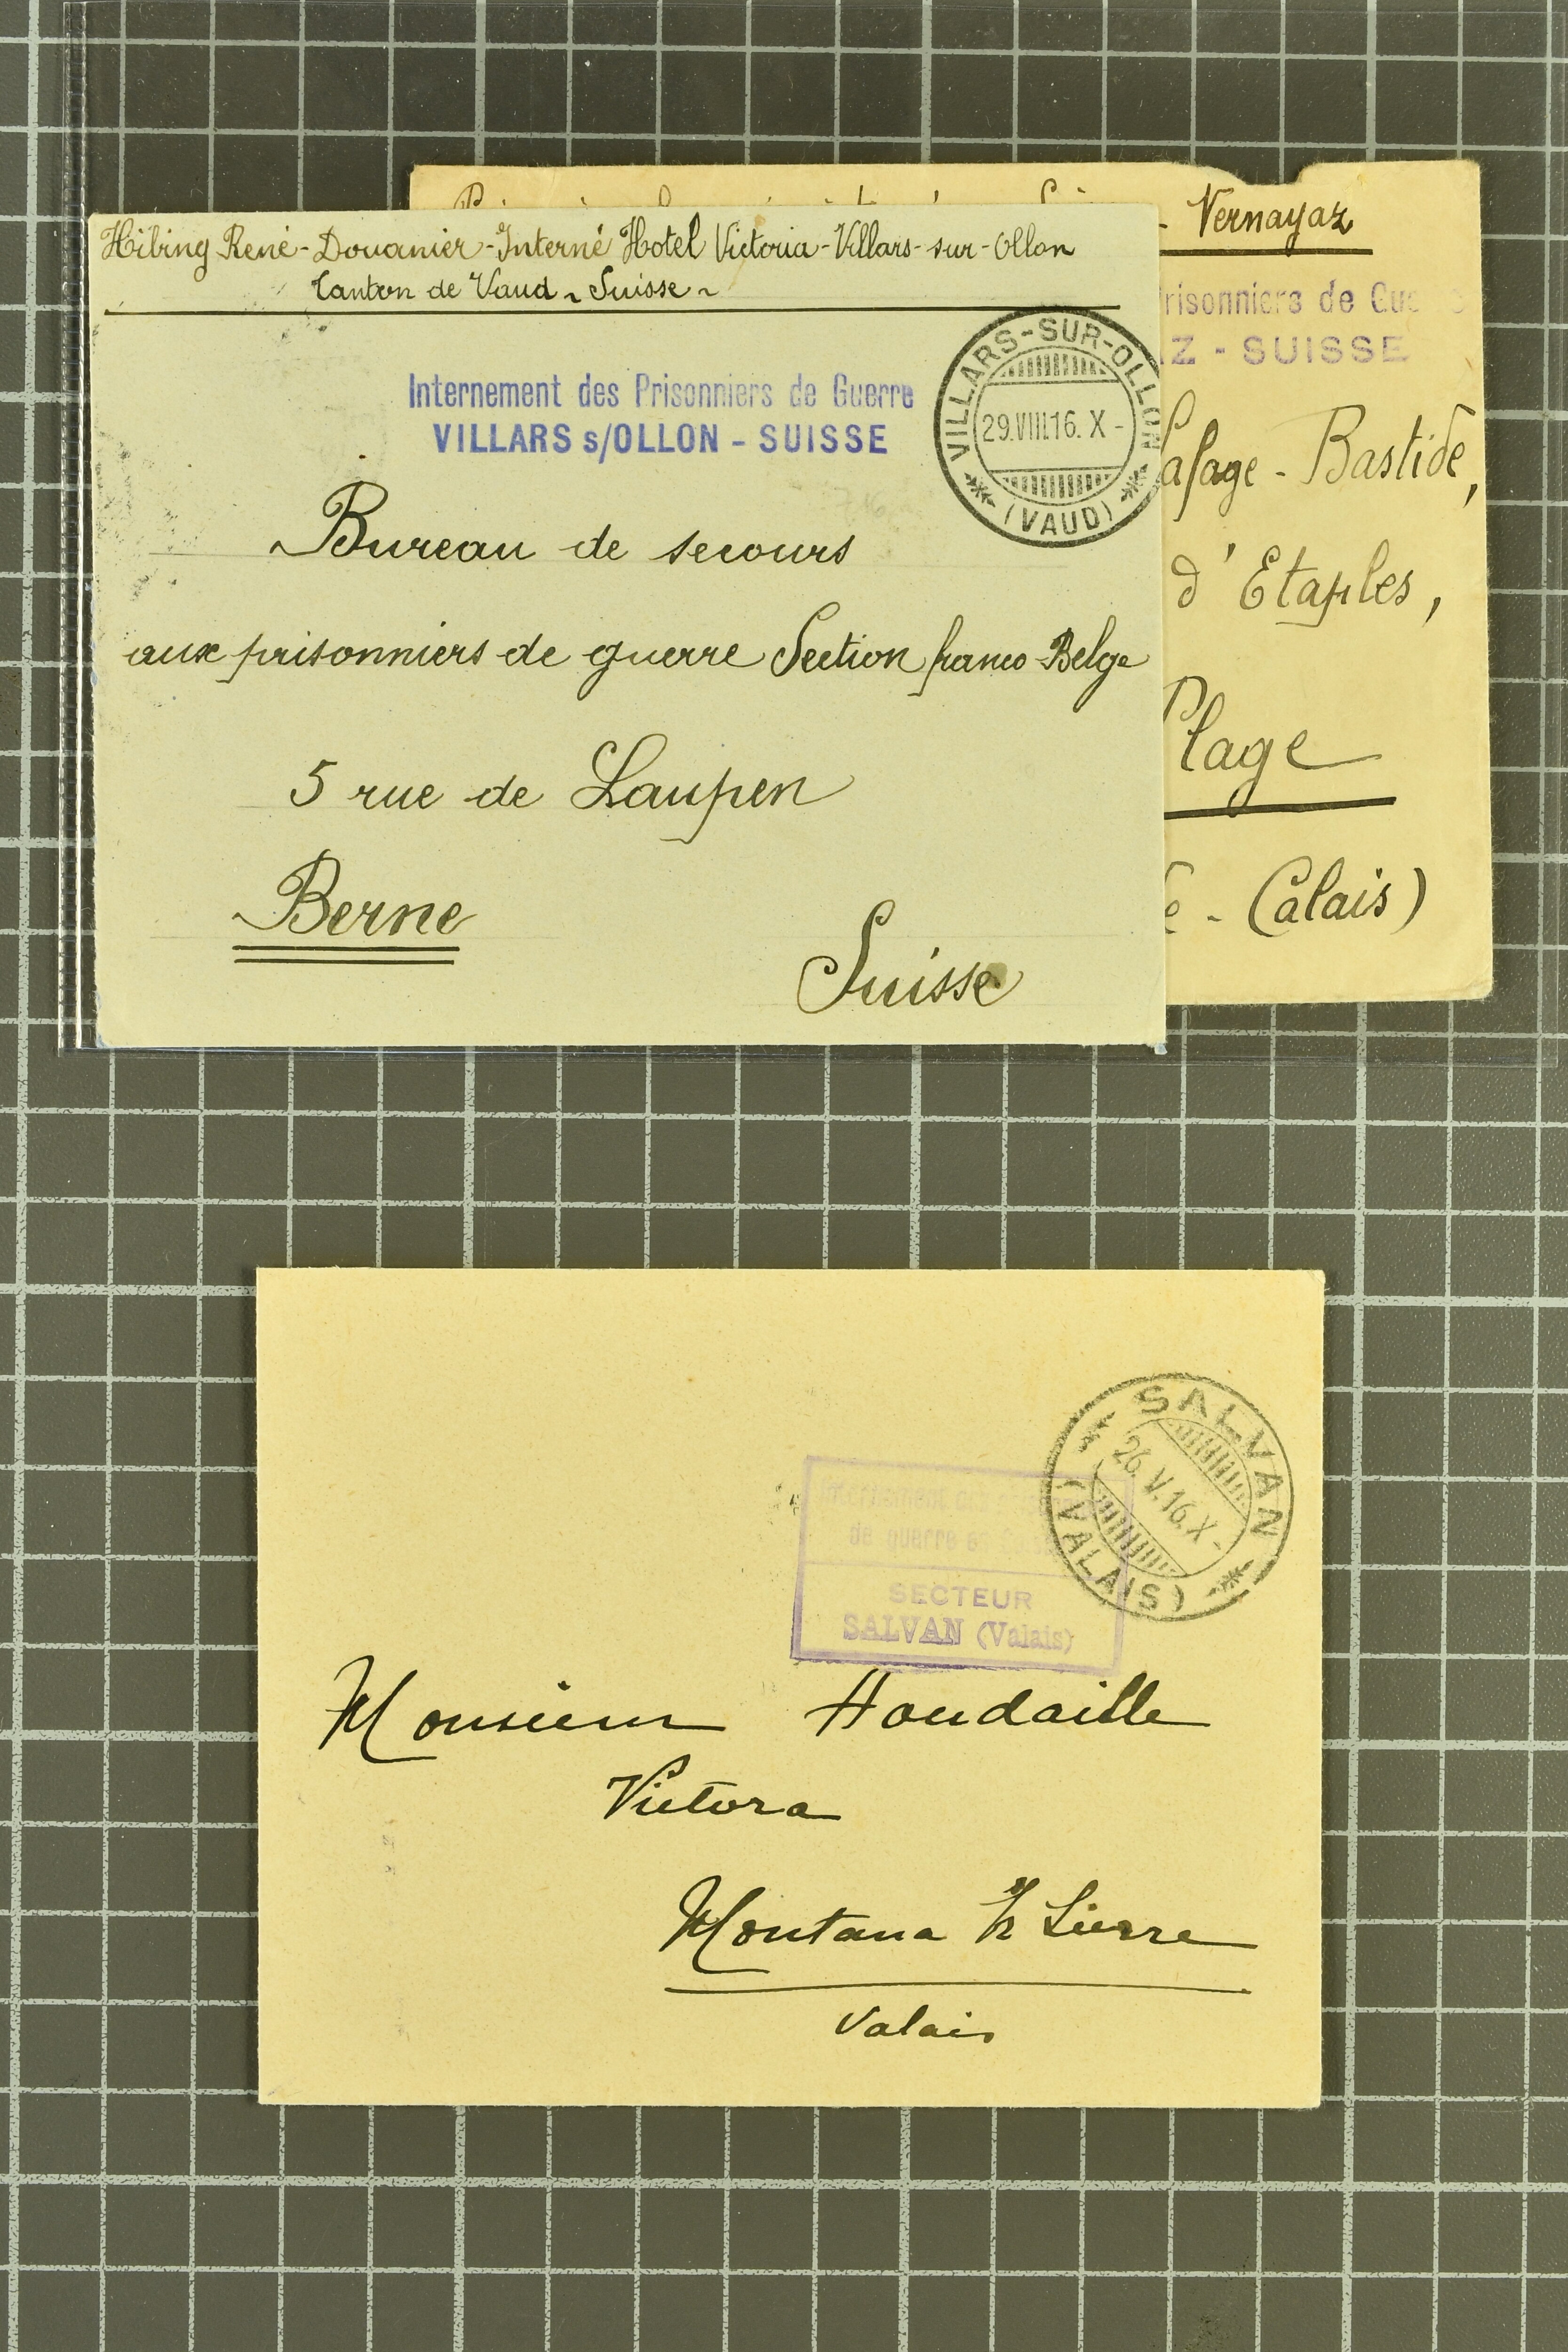 Hibing René - Douanier - Interné Hotel Victoria - Villars - sur - Ollon
Canton de Vaud - Suisse -
Internement des Prisonniers de Guerre
VILLARS s/OLLON - SUISSE
VILLARS-SUR-OLLON
29.VIII.16. X -
(VAUD)
Bureau de secours
aux prisonniers de guerre Section franco-Belge
5 rue de Laupen
Berne
Suisse
- Vernayaz
Prisonniers de Gue
Z - SUISSE
afage - Bastide,
d'Etaples,
Plage
- Calais)
SALVAN
26.V.16.X -
(VALAIS)
Internement
de guerre en
SECTEUR
SALVAN (Valais)
Monsieur Houdaille
Victora
Montana s/ Sierre
Valais